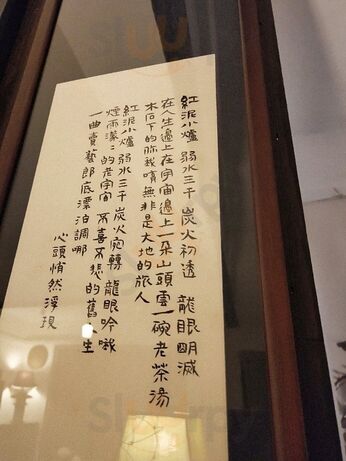 紅泥小爐 弱水三千 炭火初透 龍眼明滅
在人生邊上在宇宙邊上一朵山頭雲一碗老茶湯
木石下的你我噴無非是大地的旅人
紅泥小爐 弱水三千 炭火宛轉 龍眼吟哦
煙雨濛：的老宇宙 不喜不悲的舊人生
一曲賣藝郎底漂泊調哪
心頭悄然浮現